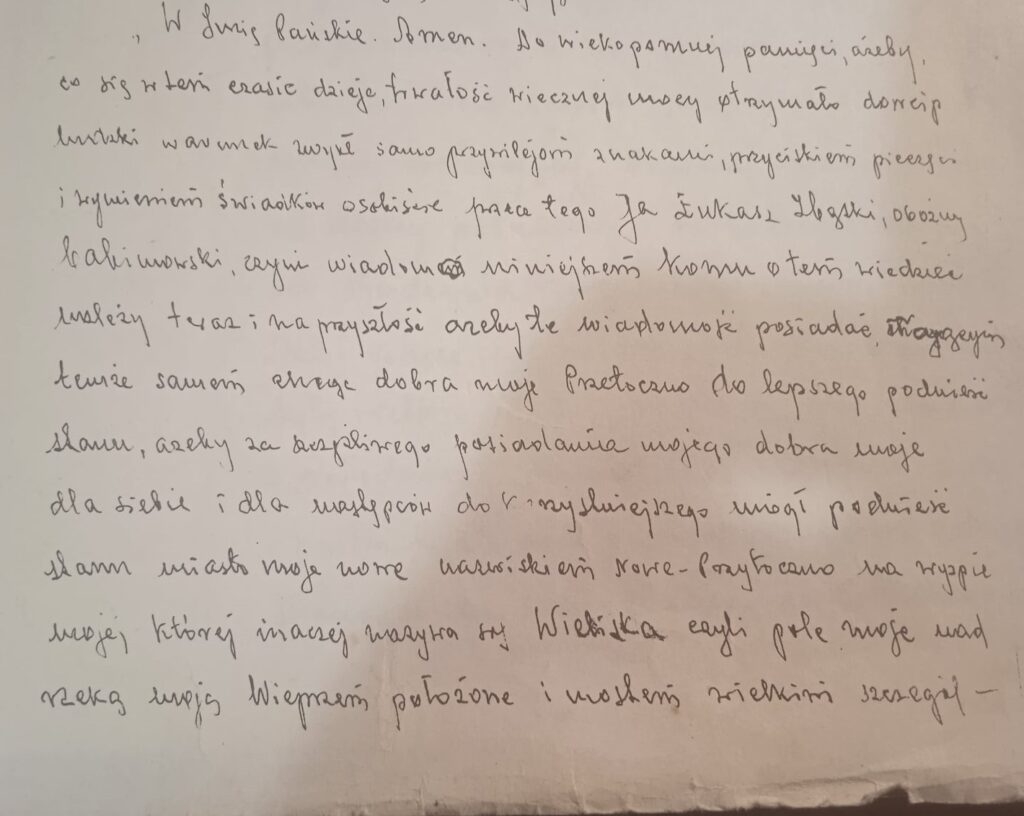 „W Imię Pańskie. Amen. Do wiekopomnej pamięci, ażeby,
co się w tem czasie dzieje, trwałość wiecznej mocy otrzymało dowcip
ludzki warunek zwykł samo przywilejom znakami, przyciskiem pieczęci
i wymieniem świadków osobiście przeto tego Ja Łukasz, obożny
czyni wiadomo niniejszem komu o tem wiedzieć
należy teraz i na przyszłość ażeby te wiadomość posiadać,
temże samem chcąc dobra moje Przetoczno do lepszego podnieść
stanu, ażeby za szczęśliwego posiadania mojego dobra moje
dla siebie i dla następców do korzystniejszego mógł podnieść
stanu miasto moje nowe nazwiskiem Nowe-Przytoczno na wyspie
mojej, której inaczej nazywa się Wieliska czyli pole moje nad
rzeką moją Wieprzem położone i mostem wielkim szczegól–